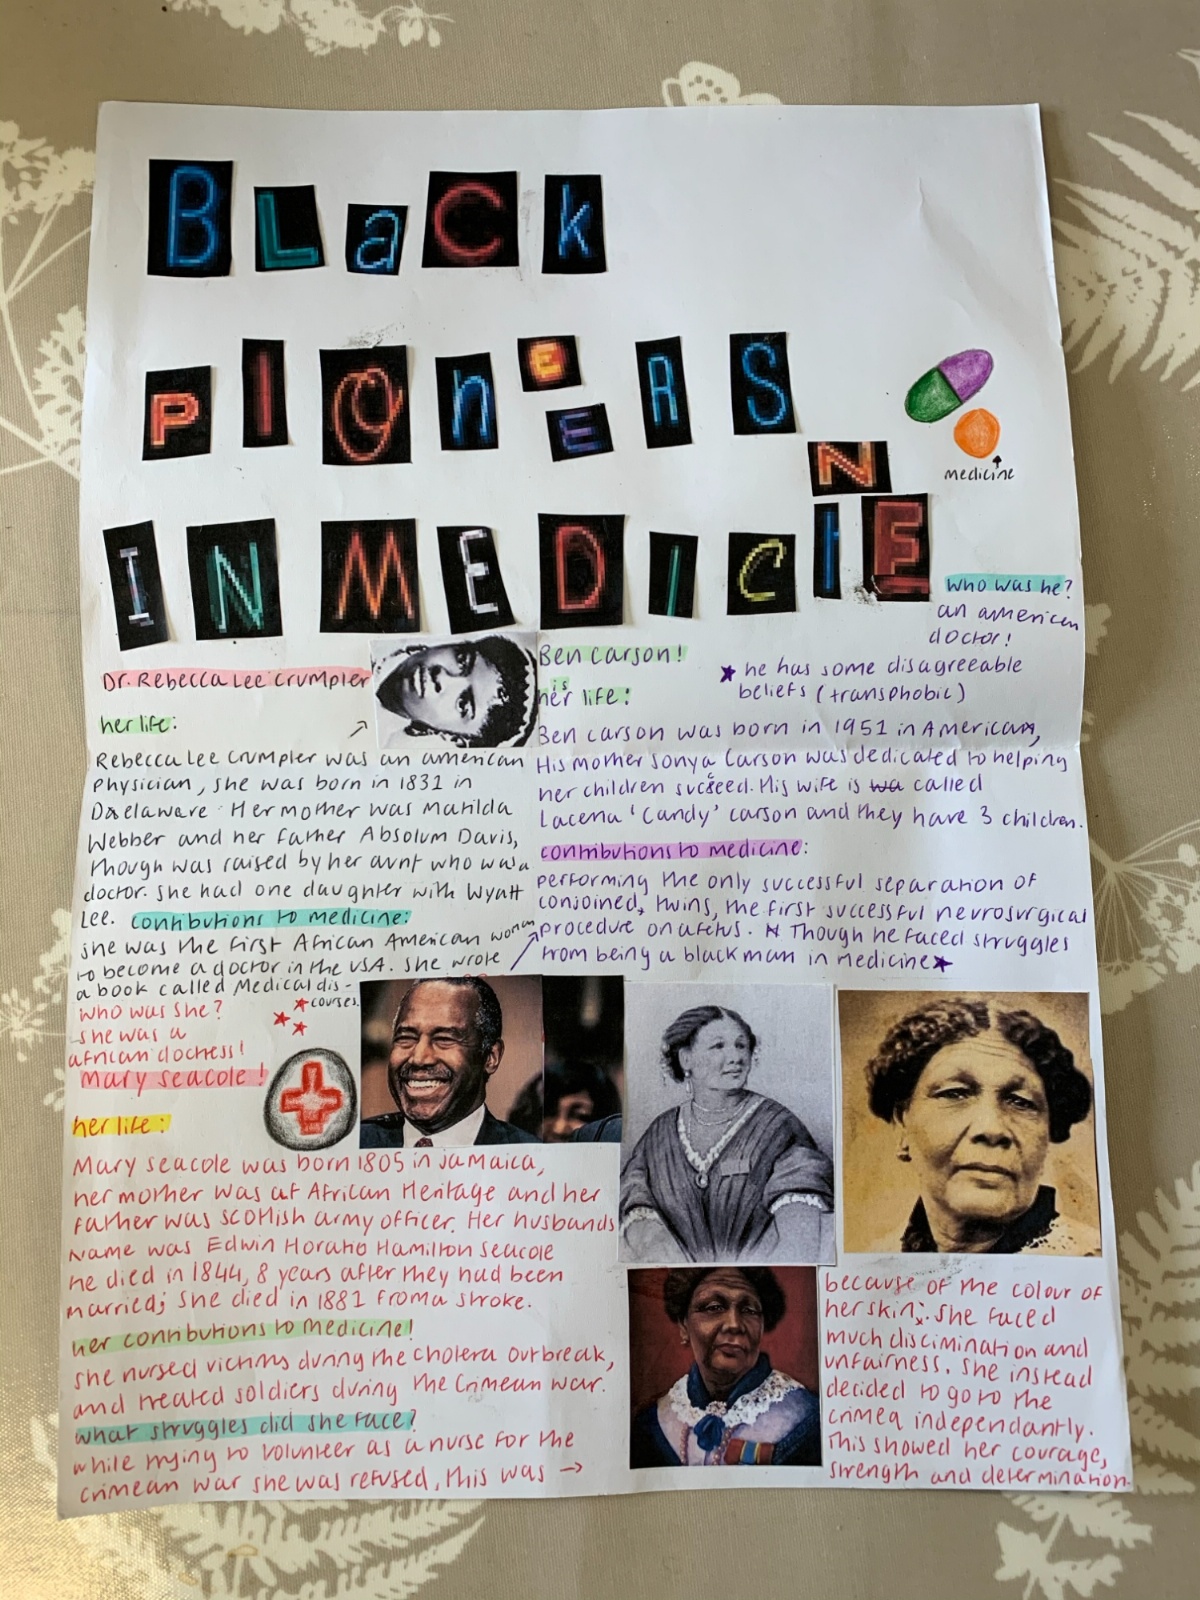 BLaCk
PIOnEERS
IN MEDICINE
medicine
who was he?
an american
doctor!
★ he has some disagreeable
beliefs (transphobic)
Dr. Rebecca Lee Crumpler
her life:
Rebecca Lee Crumpler was an american
Physician, she was born in 1831 in
Delaware. Her mother was Matilda
Webber and her father Absolum Davis,
though was raised by her aunt who was a
doctor. She had one daughter with Wyatt
Lee. contibutions to medicine:
she was the first African American woman
to become a doctor in the USA. She wrote
a book called Medical dis-
courses.
Ben Carson!
his life:
Ben Carson was born in 1951 in American,
His mother Sonya Carson was dedicated to helping
her children succeed. His wife is wa called
Lacena 'Candy' Carson and they have 3 children.
contributions to medicine:
performing the only successful separation of
conjoined, twins, the first successful neurosurgical
procedure on a fetus. Though he faced struggles
from being a black man in medicine★
who was she?
she was a
african doctress!
Mary Seacole!
her life:
Mary Seacole was born 1805 in Jamaica,
her mother was of African Heritage and her
father was scottish army officer. Her husbands
name was Edwin Horatio Hamilton Seacole
he died in 1844, 8 years after they had been
married; She died in 1881 from a stroke.
her contributions to medicine!
she nursed victims during the cholera outbreak,
and treated soldiers during the Crimean War.
what struggles did she face?
while trying to volunteer as a nurse for the
crimean war she was refused, this was →
because of the colour of
her skin. She faced
much discimination and
unfairness. She instead
decided to go to the
crimea independantly.
This showed her courage,
strength and determination.